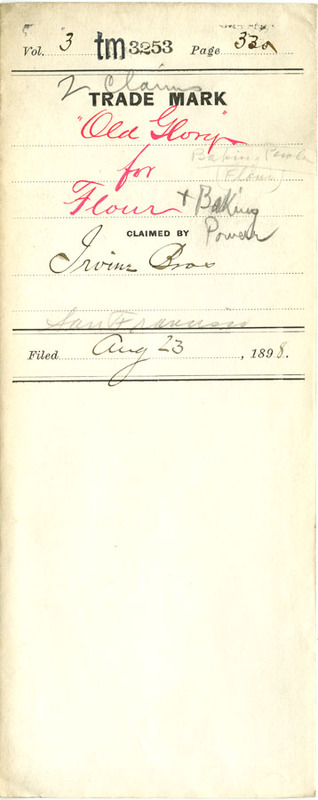 Vol. 3 tm 3253 Page 33a
2 Claims
TRADE MARK
"Old Glory"
Baking Powder
for (Flour)
Flour + Baking
Powder
CLAIMED BY
Irvine Bros
San Francisco
Filed Aug 23, 1898.